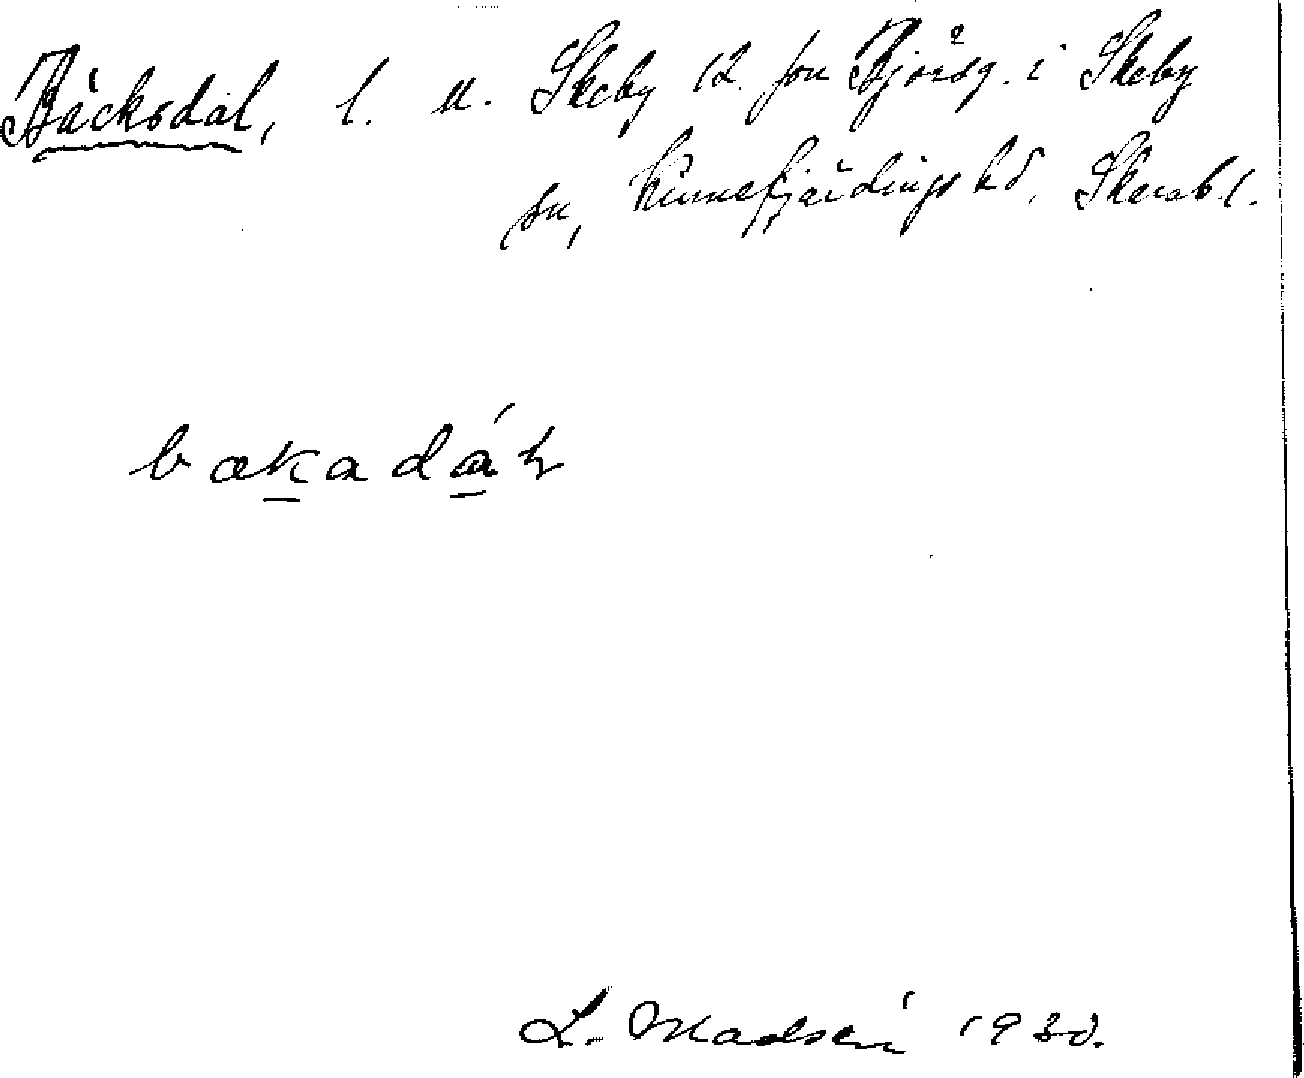 Bäcksdal, l. u. Skeby 12. frn Björsg. i Skeby
sn, Kinnefjärdings hd. Skarab. l.
bækadáɫ
L. Madsén 1930.